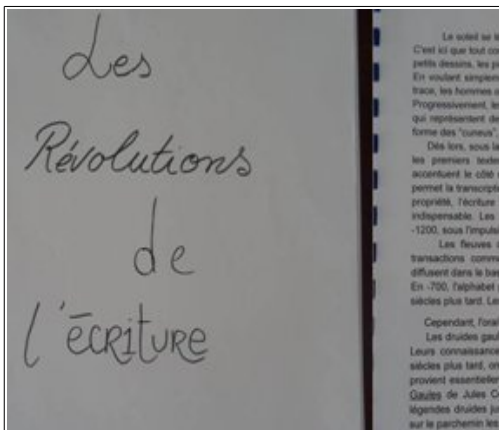 Les
Révolutions
de
l'écriture
Le soleil se
C'est ici que tout
petits dessins, les
En voulant simplem
trace, les hommes
Progressivement, les
qui représentent de
forme des "cuneus"
Dès lors, sous la
les premiers texte
accentuent le côté
permet la transcripti
propriété, l'écriture
indispensable. Les
-1200, sous l'impuls
Les fleuves
transactions comm
diffusent dans le
En -700, l'alphabet
siècles plus tard. Le
Cependant, l'oral
Les druides gaul
Leurs connaissance
siècles plus tard, on
provient essentielle
Gaules de Jules
légendes druides
sur le parchemin les